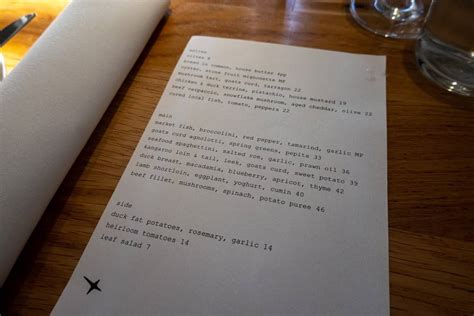 olives 8
bread in common, house butter 6pp
oyster, stone fruit mignonette MP
mushroom tart, goats curd, tarragon 22
chicken & duck terrine, pistachio, house mustard 19
beef carpaccio, snowflake mushroom, aged cheddar, olive 22
cured local fish, tomato, peppers 22
main
market fish, broccolini, red pepper, tamarind, garlic MP
goats curd agnolotti, spring greens, pepita 33
seafood spaghettini, salted roe, garlic, prawn oil 36
kangaroo loin & tail, leek, goats curd, sweet potato 39
duck breast, macadamia, blueberry, apricot, thyme 42
lamb shortloin, eggplant, yoghurt, cumin 40
beef fillet, mushrooms, spinach, potato puree 46
side
duck fat potatoes, rosemary, garlic 14
heirloom tomatoes 14
leaf salad 7